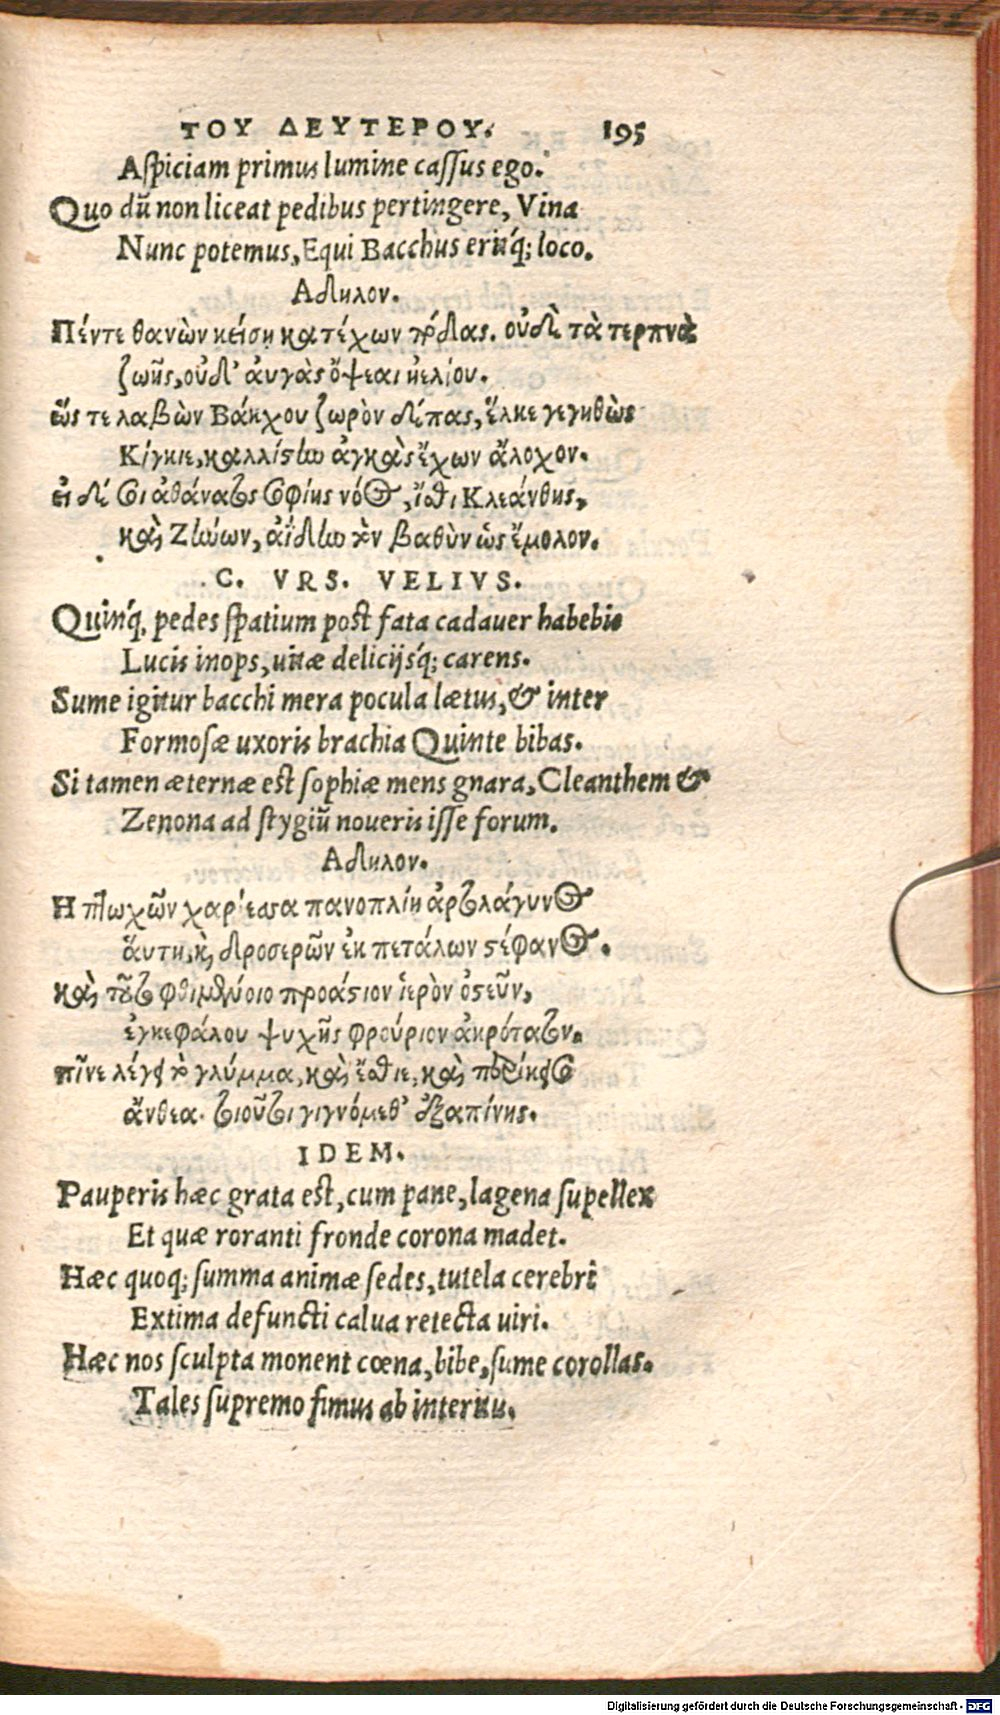 ΤΟΥ ΔΕΥΤΕΡΟΥ. 195
Aſpiciam primus lumine caſſus ego.
Quo dū non liceat pedibus pertingere, Vina
Nunc potemus, Equi Bacchus eritq́; loco.
Αδηλον.
Πέντε θανὼν κείση κατέχων πόδας. οὐδὲ τὰ τερπνὰ
ζωῆς, οὐδ' αὐγὰς ὄψεαι ἠελίου.
ὥς τε λαβὼν Βάκχου ζωρὸν δέπας, ἕλκε γεγηθὼς
Κίγκιε, καλλίστην ἀγκὰς ἔχων ἄλοχον.
εἰ δέ σοι ἀθάνατος σοφίης νόος, ἴσθι Κλεάνθης,
καὶ Ζήνων, ἀΐδην τὸν βαθὺν ὡς ἔμολον.
C. VRS. VELIVS.
Quinq́. pedes ſpatium poſt fata cadauer habebis
Lucis inops, uitæ delicijsq́; carens.
Sume igitur bacchi mera pocula lætus, & inter
Formoſæ uxoris brachia Quinte bibas.
Si tamen æternæ eſt ſophiæ mens gnara, Cleanthem &
Zenona ad ſtygiū noueris iſſe forum.
Αδηλον.
Η πτωχῶν χαρίεσσα πανοπλίη ἀρτολάγυνος
ἅυτη, καὶ δροσερῶν ἐκ πετάλων στέφανος.
καὶ τοῦτο φθιμένοιο προάστιον ἱερὸν ὀστεῦν,
ἐγκεφάλου ψυχῆς φρούριον ἀκρότατον.
πῖνε λέγει τὸ γλύμμα, καὶ ἔσθιε, καὶ περίκεισο
ἄνθεα. τοιοῦτοι γιγνόμεθ' ἐξαπίνης.
IDEM.
Pauperis hæc grata eſt, cum pane, lagena ſupellex
Et quæ roranti fronde corona madet.
Hæc quoq; ſumma animæ ſedes, tutela cerebri
Extima defuncti calua retecta uiri.
Hæc nos ſculpta monent cœna, bibe, ſume corollas.
Tales ſupremo fimus ab interitu.
Digitalisierung gefördert durch die Deutsche Forschungsgemeinschaft - DFG